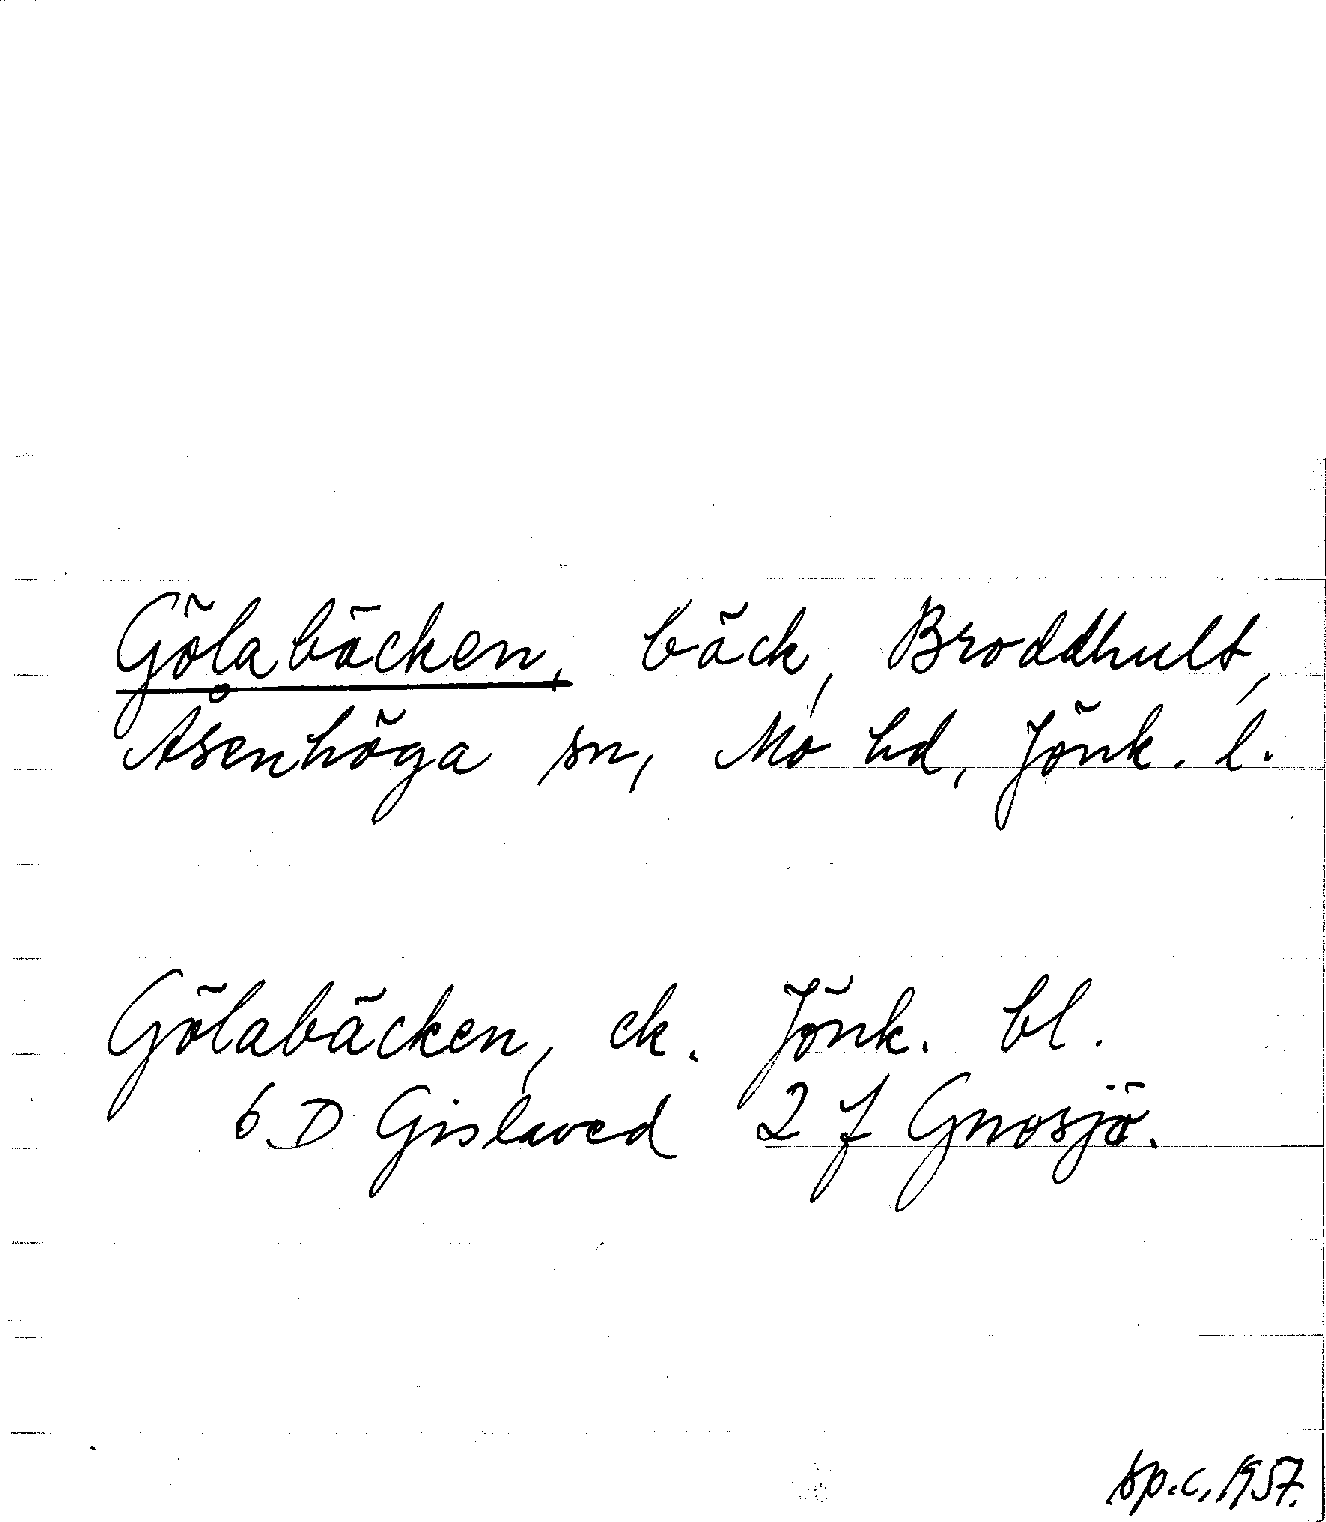 Gölabäcken, bäck, Broddhult,
Åsenhöga sn, Mo hd, Jönk. l.
Gölabäcken, ek. Jönk. bl.
6 D Gislaved 2 f Gnosjö.
sp.c. 1957.